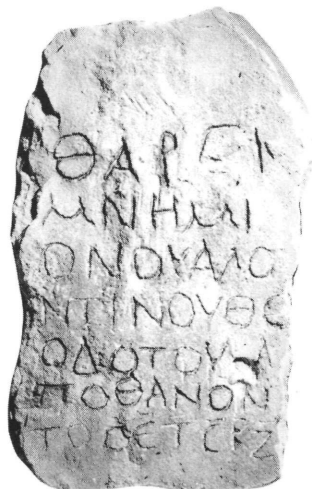 ΘΑΡϹΙ
ΜΝΗΜΙ
ΩΝΟΥΑΛΕ
ΝΤΙΝΟΥΘΕ
ΟΔΟΤΟΥΑ
ΠΟΘΑΝΟΝ
ΤΟϹΕΤϹΙΖ